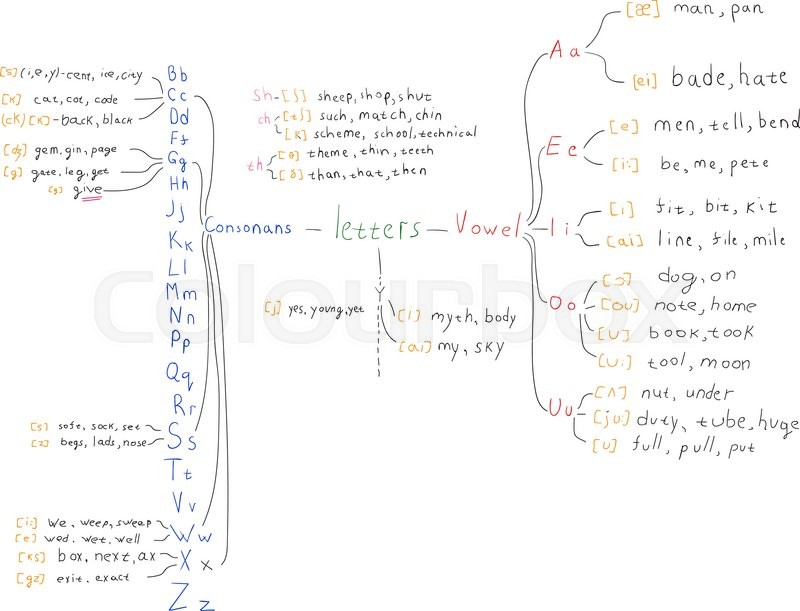 [s] (i,e,y)-cent, ice, city
[k] cat, cot, code
(ck) [k] - back, black
[dʒ] gem, gin, page
[g] gate, leg, get
[g] give
Bb
Cc
Dd
Ff
Gg
Hh
Jj
Kk
Ll
Mm
Nn
Pp
Qq
Rr
[s] soft, sock, set
[z] begs, lads, nose
Ss
Tt
Vv
[i:] we, weep, sweep
[e] wed, wet, well
Ww
[ks] box, next, ax
[gz] exit, exact
X x
Zz
Consonans
sh - [ʃ] sheep, shop, shut
ch [tʃ] such, match, chin
[k] scheme, school, technical
th [θ] theme, thin, teeth
[ð] than, that, then
letters
[j] yes, young, yet
Y
[i] myth, body
[ai] my, sky
Vowel
Aa
[æ] man, pan
[ei] bade, hate
Ee
[e] men, tell, bend
[i:] be, me, pete
Ii
[i] fit, bit, kit
[ai] line, file, mile
Oo
[ɔ] dog, on
[ou] note, home
[u] book, took
[u:] tool, moon
Uu
[ʌ] nut, under
[ju:] duty, tube, huge
[u] full, pull, put
Colourbox